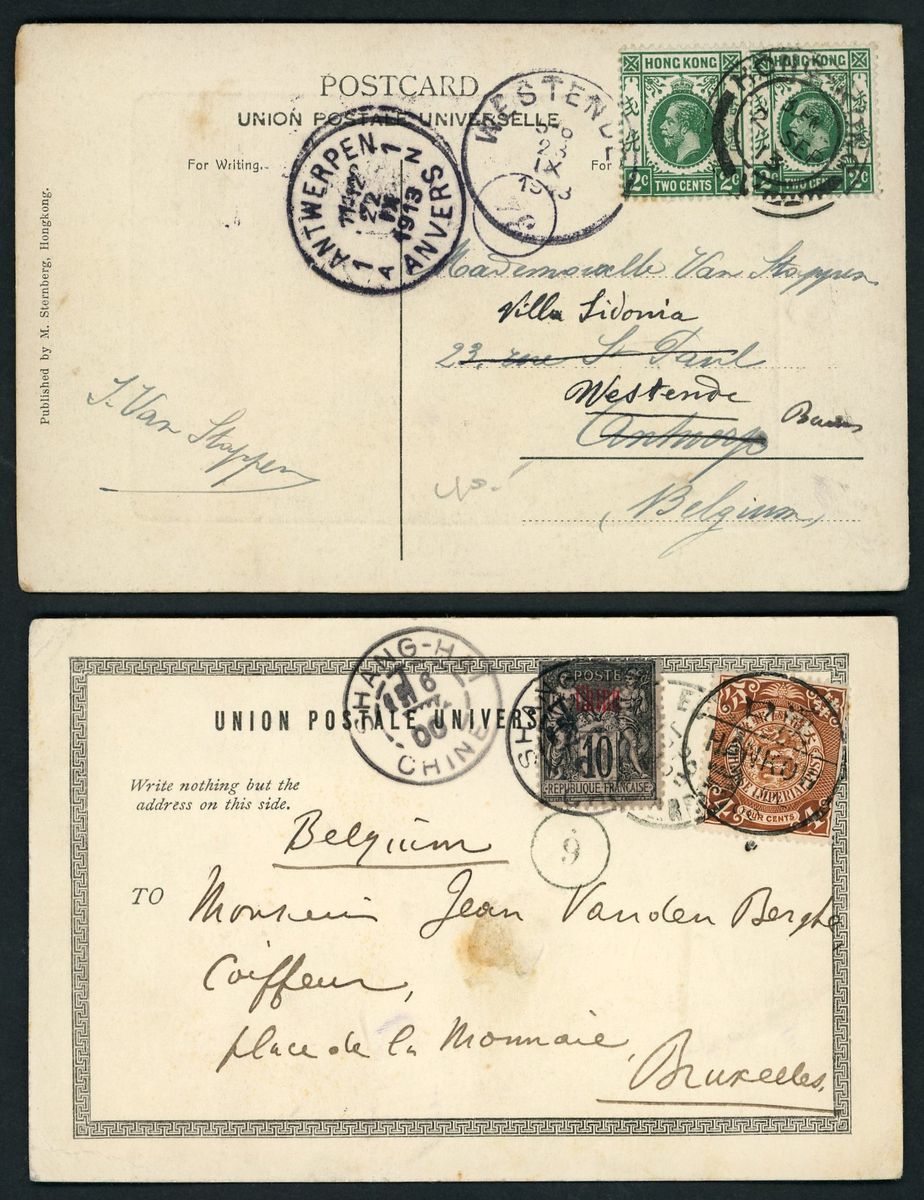 POSTCARD
UNION POSTALE UNIVERSELLE
For Writing.
For
HONG KONG
2c TWO CENTS 2c
HONG KONG
2c TWO CENTS 2c
HONG KONG
SEP
13
WESTENDE
IX
ANTWERPEN 1
22
IX
1913
1 A ANVERS N
Mademoiselle Van Stappen
Villa Sidonia
23, rue St Paul
Westende
Antwerp
Belgium
J. Van Stappen
Published by M. Sternberg, Hongkong.
SHANG-HAI
CHINE
6
00
UNION POSTALE UNIVERS
POSTE
Chine
10
REPUBLIQUE FRANÇAISE
SHANG
CHINESE IMPERIAL POST
4 FOUR CENTS 4
Write nothing but the
address on this side.
6
Belgium
TO
Monsieur Jean Vanden Berghe
Coiffeur,
place de la Monnaie,
Bruxelles.